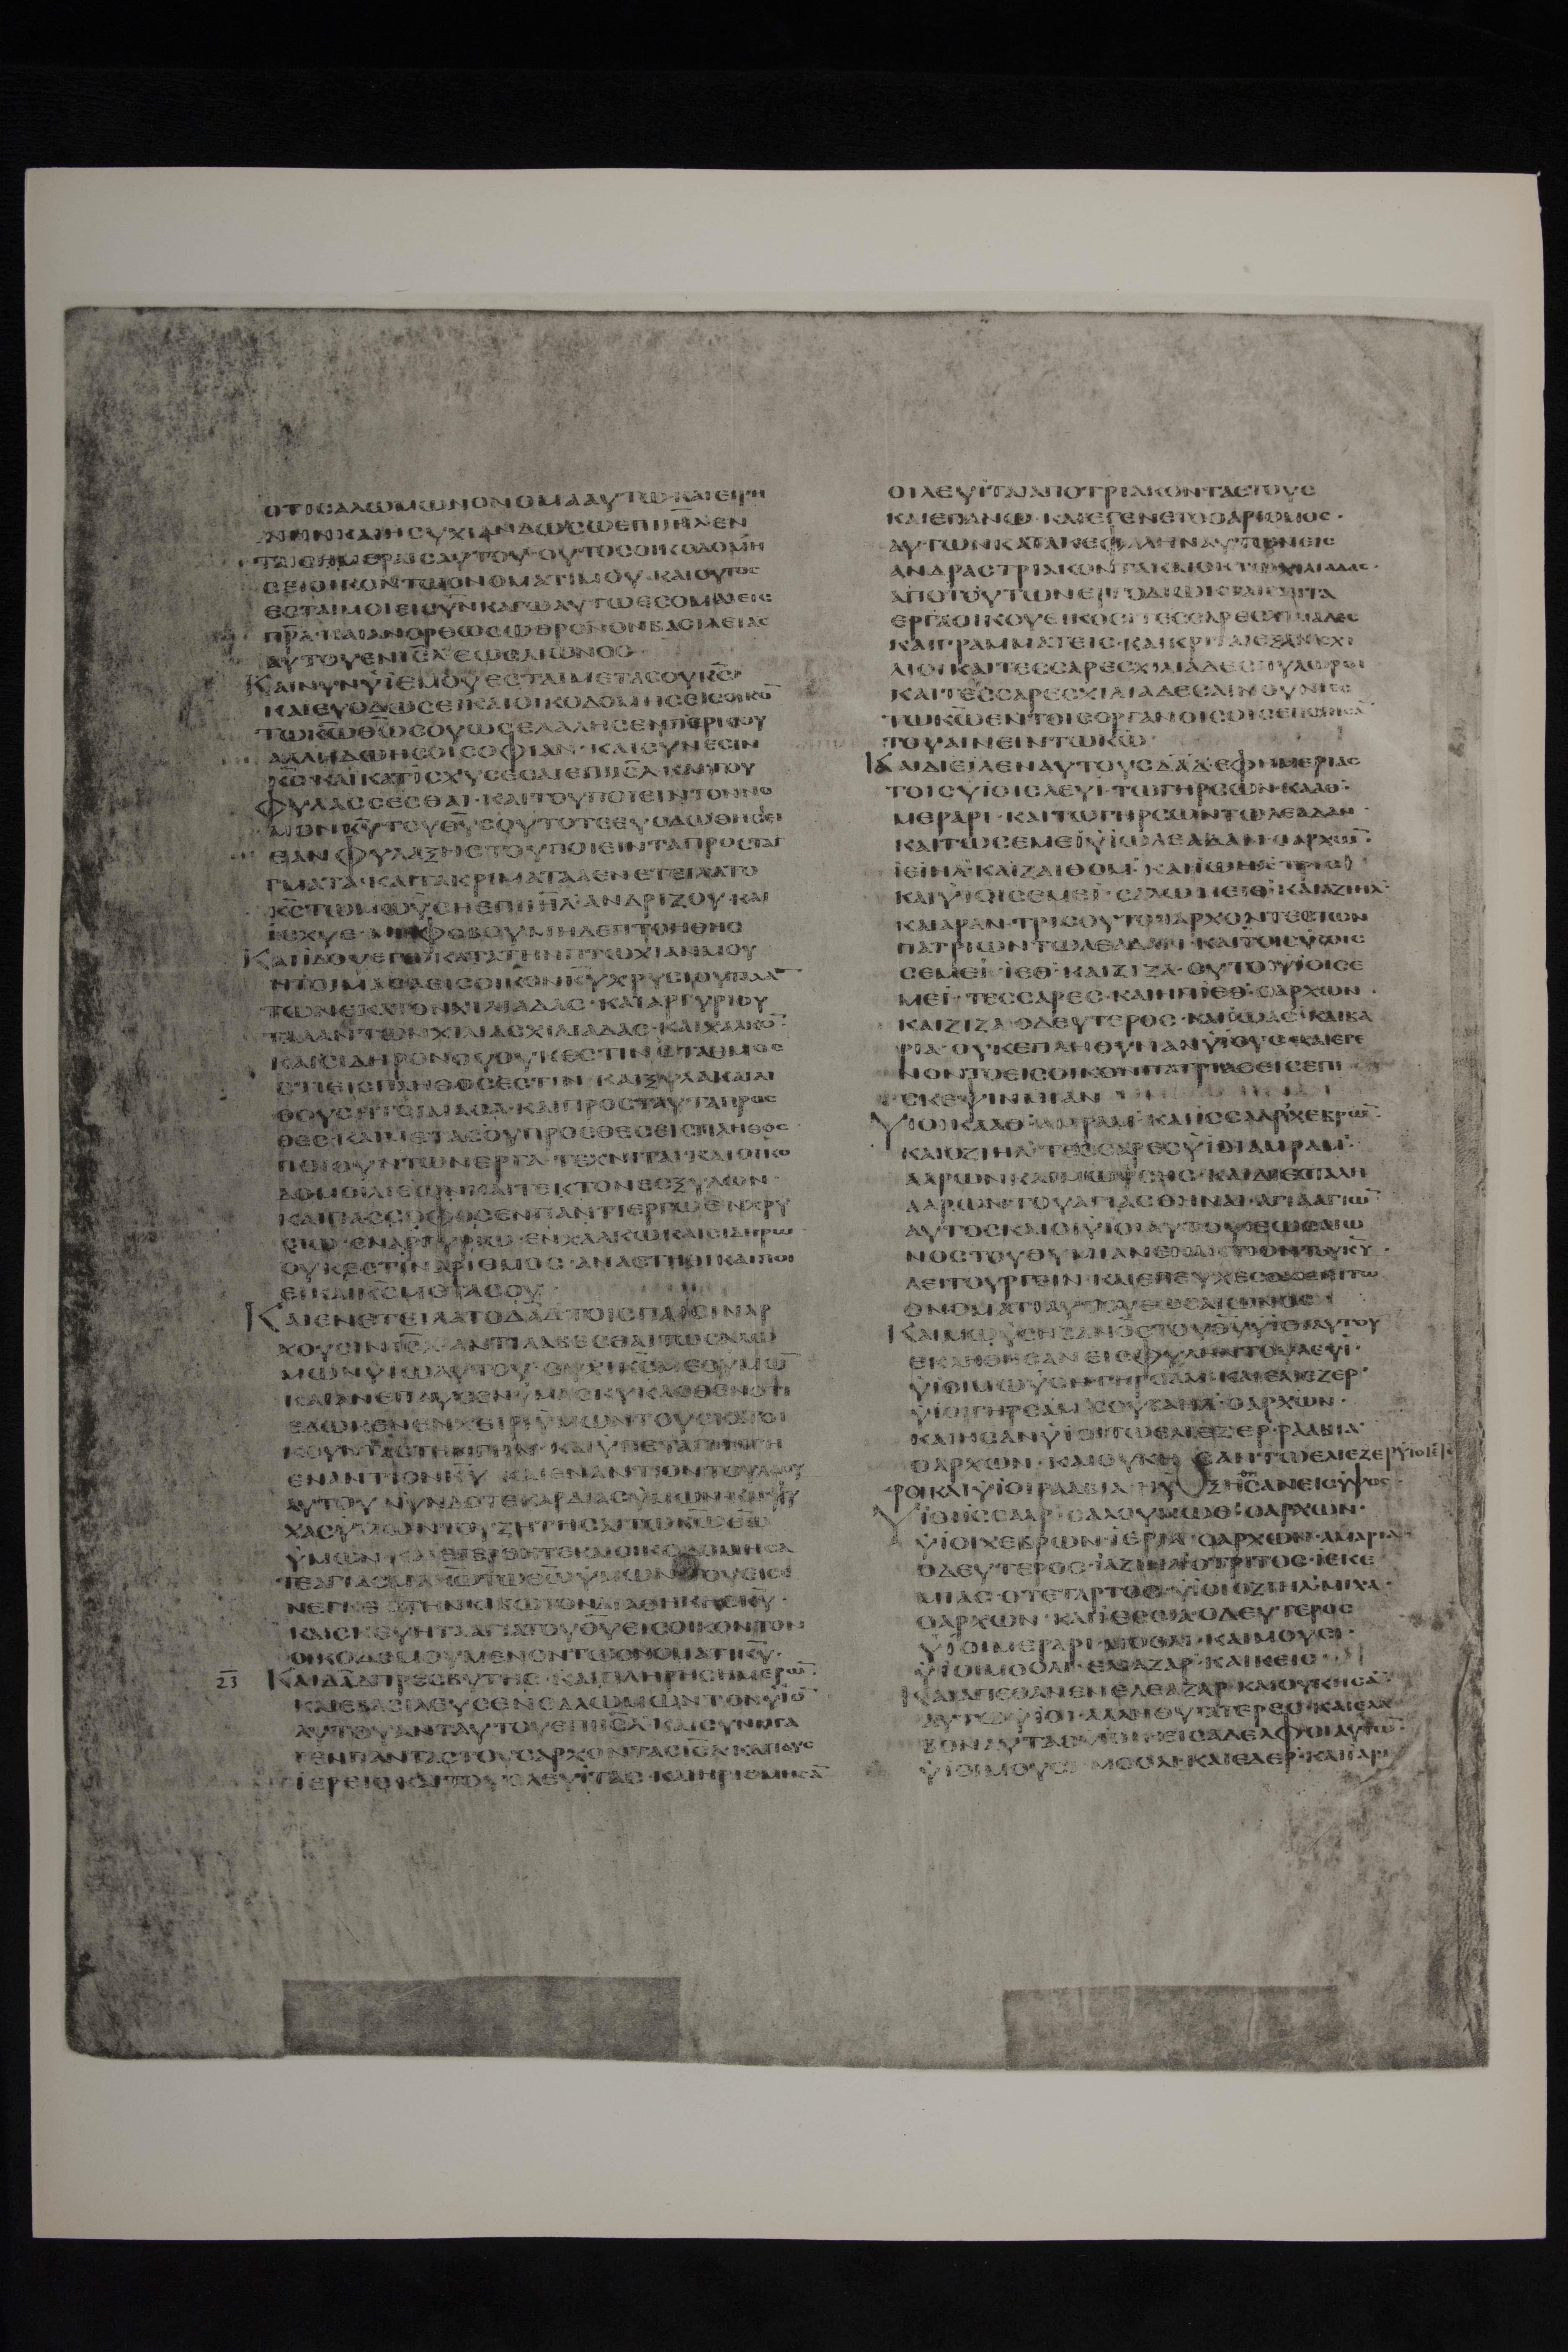 ΟΤΙϹΑΛΩΜΩΝΟΝΟΜΑΑΥΤΩ·ΚΑΙΕΙΡΗ
ΝΗΝΚΑΙΗϹΥΧΙΑΝΔΩϹΩΕΠΙΙΗΛΕΝ
ΤΑΙϹΗΜΕΡΑΙϹΑΥΤΟΥ·ΟΥΤΟϹΟΙΚΟΔΟΜΗ
ϹΕΙΟΙΚΟΝΤΩΟΝΟΜΑΤΙΜΟΥ·ΚΑΙΟΥΤΟϹ
ΕϹΤΑΙΜΟΙΕΙϹΥΝΚΑΓΩΑΥΤΩΕϹΟΜΑΙΕΙϹ
ΠΡΑ·ΚΑΙΑΝΟΡΘΩϹΩΘΡΟΝΟΝΒΑϹΙΛΕΙΑϹ
ΑΥΤΟΥΕΝΙϹΛΕΩϹΑΙΩΝΟϹ
ΚΑΙΝΥΝΫΙΕΜΟΥΕϹΤΑΙΜΕΤΑϹΟΥΚϹ
ΚΑΙΕΥΟΔΩϹΕΙΚΑΙΟΙΚΟΔΟΜΗϹΕΙϹΟΙΚΟ
ΤΩΚΩΘΩϹΟΥΩϹΕΛΑΛΗϹΕΝΠΕΡΙϹΟΥ
ΑΛΛΗΔΩΗϹΟΙϹΟΦΙΑΝ·ΚΑΙϹΥΝΕϹΙΝ
ΚϹ·ΚΑΙΚΑΤΙϹΧΥϹΕϹΑΙΕΠΙΙϹΛ·ΚΑΙΤΟΥ
ΦΥΛΑϹϹΕϹΘΑΙ·ΚΑΙΤΟΥΠΟΙΕΙΝΤΟΝΝΟ
ΜΟΝΚΥΤΟΥΘΥϹΟΥΤΟΤΕΕΥΟΔΩΘΗϹΕΙ
ΕΑΝΦΥΛΑΞΗϹΤΟΥΠΟΙΕΙΝΤΑΠΡΟϹΤΑ
ΓΜΑΤΑ·ΚΑΙΤΑΚΡΙΜΑΤΑΑΕΝΕΤΕΙΛΑΤΟ
ΚϹΤΩΜΩΫϹΗΕΠΙΙΗΛ·ΑΝΔΡΙΖΟΥ·ΚΑΙ
ΙϹΧΥΕ·ΜΗΦΟΒΟΥΜΗΔΕΠΤΟΗΘΗϹ
ΚΑΙΙΔΟΥΕΓΩΚΑΤΑΤΗΝΠΤΩΧΙΑΝΜΟΥ
ΗΤΟΙΜΑϹΑΕΙϹΟΙΚΟΝΚΥΧΡΥϹΙΟΥΤΑΛΑ
ΤΩΝΕΚΑΤΟΝΧΙΛΙΑΔΑϹ·ΚΑΙΑΡΓΥΡΙΟΥ
ΤΑΛΑΝΤΩΝΧΙΛΙΑϹΧΙΛΙΑΔΑϹ·ΚΑΙΧΑΛΚΟ
ΚΑΙϹΙΔΗΡΟΝΟΥΟΥΚΕϹΤΙΝϹΤΑΘΜΟϹ
ΟΤΙΕΙϹΠΛΗΘΟϹΕϹΤΙΝ·ΚΑΙΞΥΛΑΚΑΙΛΙ
ΘΟΥϹΗΤΟΙΜΑϹΑ·ΚΑΙΠΡΟϹΤΑΥΤΑΠΡΟϹ
ΘΕϹ·ΚΑΙΜΕΤΑϹΟΥΠΡΟϹΘΕϹΕΙϹΠΛΗΘΟϹ
ΠΟΙΟΥΝΤΩΝΕΡΓΑ·ΤΕΧΝΙΤΑΙ·ΚΑΙΟΙΚΟ
ΔΟΜΟΙΛΙΘΩΝΚΑΙΤΕΚΤΟΝΕϹΞΥΛΩΝ·
ΚΑΙΠΑϹϹΟΦΟϹΕΝΠΑΝΤΙΕΡΓΩΕΝΧΡΥ
ϹΙΩ·ΕΝΑΡΓΥΡΙΩ·ΕΝΧΑΛΚΩΚΑΙϹΙΔΗΡΩ
ΟΥΚΕϹΤΙΝΑΡΙΘΜΟϹ·ΑΝΑϹΤΗΘΙΚΑΙΠΟΙ
ΕΙΚΑΙΚϹΜΕΤΑϹΟΥ·
ΚΑΙΕΝΕΤΕΙΛΑΤΟΔΑΔΤΟΙϹΠΑϹΙΝΑΡ
ΧΟΥϹΙΝΙϹΛ·ΑΝΤΙΛΑΒΕϹΘΑΙΤΩϹΑΛΩ
ΜΩΝΥΙΩΑΥΤΟΥ·ΟΥΧΙΚϹΜΕΘΥΜΩ
ΚΑΙΑΝΕΠΑΥϹΕΝΥΜΑϹΚΥΚΛΟΘΕΝΟΤΙ
ΕΔΩΚΕΝΕΝΧΕΙΡΙΥΜΩΝΤΟΥϹΚΑΤΟΙ
ΚΟΥΝΤΑϹΤΗΝΓΗΝ·ΚΑΙΥΠΕΤΑΓΗΗΓΗ
ΕΝΑΝΤΙΟΝΚΥ·ΚΑΙΕΝΑΝΤΙΟΝΤΟΥΛΑΟΥ
ΑΥΤΟΥ·ΝΥΝΔΟΤΕΚΑΡΔΙΑϹΥΜΩΝΚΑΙΨΥ
ΧΑϹΥΜΩΝΤΟΥΖΗΤΗϹΑΙΤΩΚΩΘΩ
ΥΜΩΝ·ΚΑΙΕΓΕΡΘΗΤΕΚΑΙΟΙΚΟΔΟΜΗϹΑ
ΤΕΑΓΙΑϹΜΑΚΩΤΩΘΩΥΜΩΝΤΟΥΕΙϹΕ
ΝΕΓΚΕΙΝΤΗΝΚΙΒΩΤΟΝΔΙΑΘΗΚΗϹΚΥ·
ΚΑΙϹΚΕΥΗΤΑΑΓΙΑΤΟΥΘΥΕΙϹΟΙΚΟΝΤΟΝ
ΟΙΚΟΔΟΜΟΥΜΕΝΟΝΤΩΟΝΟΜΑΤΙΚΥ·
23 ΚΑΙΔΑΔΠΡΕϹΒΥΤΗϹ·ΚΑΙΠΛΗΡΗϹΗΜΕΡΩ·
ΚΑΙΕΒΑϹΙΛΕΥϹΕΝϹΑΛΩΜΩΝΤΟΝΥΙΟ
ΑΥΤΟΥΑΝΤΑΥΤΟΥΕΠΙΙϹΛ·ΚΑΙϹΥΝΗΓΑ
ΓΕΝΠΑΝΤΑϹΤΟΥϹΑΡΧΟΝΤΑϹΙϹΛΚΑΙΤΟΥϹ
ΙΕΡΕΙϹ·ΚΑΙΤΟΥϹΛΕΥΙΤΑϹ·ΚΑΙΗΡΙΘΜΗϹΑ
ΟΙΛΕΥΙΤΑΙΑΠΟΤΡΙΑΚΟΝΤΑΕΤΟΥϹ
ΚΑΙΕΠΑΝΩ·ΚΑΙΕΓΕΝΕΤΟΟΑΡΙΘΜΟϹ·
ΑΥΤΩΝΚΑΤΑΚΕΦΑΛΗΝΑΥΤΩΝΕΙϹ
ΑΝΔΡΑϹΤΡΙΑΚΟΝΤΑΚΑΙΟΚΤΩΧΙΛΙΑΔΑϹ·
ΑΠΟΤΟΥΤΩΝΕΡΓΟΔΙΩΚΤΑΙΕΠΙΤΑ
ΕΡΓΑΟΙΚΟΥΕΙΚΟϹΙΤΕϹϹΑΡΕϹΧΙΛΙΑΔΕϹ
ΚΑΙΓΡΑΜΜΑΤΕΙϹ·ΚΑΙΚΡΙΤΑΙΕΞΑΚΙϹΧΙ
ΛΙΟΙΚΑΙΤΕϹϹΑΡΕϹΧΙΛΙΑΔΕϹΠΥΛΩΡΟΙ
ΚΑΙΤΕϹϹΑΡΕϹΧΙΛΙΑΔΕϹΑΙΝΟΥΝΤΕϹ
ΤΩΚΩΕΝΤΟΙϹΟΡΓΑΝΟΙϹΟΙϹΕΠΟΙΗϹΑ
ΤΟΥΑΙΝΕΙΝΤΩΚΩ·
ΚΑΙΔΙΕΙΛΕΝΑΥΤΟΥϹΔΑΔΕΦΗΜΕΡΙΑϹ
ΤΟΙϹΥΙΟΙϹΛΕΥΙ·ΤΩΓΗΡϹΩΝ·ΚΑΑΘ·
ΜΕΡΑΡΙ·ΚΑΙΤΩΓΗΡϹΩΝΤΩΛΕΑΔΑΝ·
ΚΑΙΤΩϹΕΜΕΪΥΙΩΛΕΑΔΑΝ·ΟΑΡΧΩ·
ΙΕΙΗΛ·ΚΑΙΖΑΙΘΟΜ·ΚΑΙΙΩΗΛ·ΤΡΕΙϹ
ΚΑΙΥΙΟΙϹΕΜΕΪ·ϹΑΛΩΜΕΙΘ·ΚΑΙΑΖΙΗΛ·
ΚΑΙΑΡΑΝ·ΤΡΙϹΟΥΤΟΙΑΡΧΟΝΤΕϹΤΩΝ
ΠΑΤΡΙΩΝΤΩΛΕΑΔΑΝ·ΚΑΙΤΟΙϹΥΙΟΙϹ
ϹΕΜΕΪ·ΙΕΘ·ΚΑΙΖΙΖΑ·ΟΥΤΟΙΥΙΟΙϹΕ
ΜΕΪ·ΤΕϹϹΑΡΕϹ·ΚΑΙΗΝΙΕΘ·ΟΑΡΧΩΝ·
ΚΑΙΖΙΖΑ·ΟΔΕΥΤΕΡΟϹ·ΚΑΙΙΩΑϹ·ΚΑΙΒΑ
ΡΙΑ·ΟΥΚΕΠΛΗΘΥΝΑΝΥΙΟΥϹ·ΚΑΙΕΓΕ
ΝΟΝΤΟΕΙϹΟΙΚΟΝΠΑΤΡΙΑϹΕΙϹΕΠΙ
ϹΚΕΨΙΝΜΙΑΝ
ΥΙΟΙΚΑΑΘ·ΑΜΡΑΜ·ΚΑΙΙϹϹΑΑΡ·ΧΕΒΡΩ·
ΚΑΙΟΖΙΗΛ·ΤΕϹϹΑΡΕϹΥΙΟΙΑΜΡΑΜ·
ΑΑΡΩΝΚΑΙΜΩΫϹΗϹ·ΚΑΙΔΙΕϹΤΑΛΗ
ΑΑΡΩΝ·ΤΟΥΑΓΙΑϹΘΗΝΑΙ·ΑΓΙΑΑΓΙΩ
ΑΥΤΟϹΚΑΙΟΙΥΙΟΙΑΥΤΟΥ·ΕΩϹΑΙΩ
ΝΟϹΤΟΥΘΥΜΙΑΝΕΝΑΝΤΙΟΝΤΟΥΚΥ·
ΛΕΙΤΟΥΡΓΕΙΝ·ΚΑΙΕΠΕΥΧΕϹΘΑΙΕΠΙΤΩ
ΟΝΟΜΑΤΙΑΥΤΟΥΕΩϹΑΙΩΝΟϹ
ΚΑΙΜΩΫϹΗϹΑΝΟϹΤΟΥΘΥΥΙΟΙΑΥΤΟΥ
ΕΚΛΗΘΗϹΑΝΕΙϹΦΥΛΗΝΤΟΥΛΕΥΙ·
ΥΙΟΙΜΩΫϹΗ·ΓΗΡϹΑΜ·ΚΑΙΕΛΙΕΖΕΡ·
ΥΙΟΙΓΗΡϹΑΜ·ϹΟΥΒΑΗΛ·ΟΑΡΧΩΝ·
ΚΑΙΗϹΑΝΥΙΟΙΤΩΕΛΙΕΖΕΡ·ΡΑΑΒΙΑ·
ΟΑΡΧΩΝ·ΚΑΙΟΥΚΗϹΑΝΤΩΕΛΙΕΖΕΡΥΙΟΙΕ
ΡΟΙΚΑΙΥΙΟΙΡΑΑΒΙΑΗΥΞΗΘΗϹΑΝΕΙϹΥΨΟϹ·
ΥΙΟΙΙϹϹΑΑΡ·ϹΑΛΟΥΜΩΘ·ΟΑΡΧΩΝ·
ΥΙΟΙΧΕΒΡΩΝ·ΙΕΡΙΑ·ΟΑΡΧΩΝ·ΑΜΑΡΙΑ·
ΟΔΕΥΤΕΡΟϹ·ΙΑΖΙΗΛ·ΟΤΡΙΤΟϹ·ΙΕΚΕ
ΜΙΑϹ·ΟΤΕΤΑΡΤΟϹ·ΥΙΟΙΟΖΙΗΛ·ΜΙΧΑ·
ΟΑΡΧΩΝ·ΚΑΙΙΕϹΙΑ·ΟΔΕΥΤΕΡΟϹ
ΥΙΟΙΜΕΡΑΡΙ·ΜΟΟΛΙ·ΚΑΙΜΟΥϹΙ·
ΥΙΟΙΜΟΟΛΙ·ΕΛΕΑΖΑΡ·ΚΑΙΚΕΙϹ·
ΚΑΙΑΠΕΘΑΝΕΝΕΛΕΑΖΑΡ·ΚΑΙΟΥΚΗϹΑ
ΑΥΤΩΥΙΟΙ·ΑΛΛΗΘΥΓΑΤΕΡΕϹ·ΚΑΙΕΛΑ
ΒΟΝΑΥΤΑϹΥΙΟΙΚΕΙϹΑΔΕΛΦΟΙΑΥΤΩ·
ΥΙΟΙΜΟΥϹΙ·ΜΟΟΛΙ·ΚΑΙΕΔΕΡ·ΚΑΙΙΑΡΙ